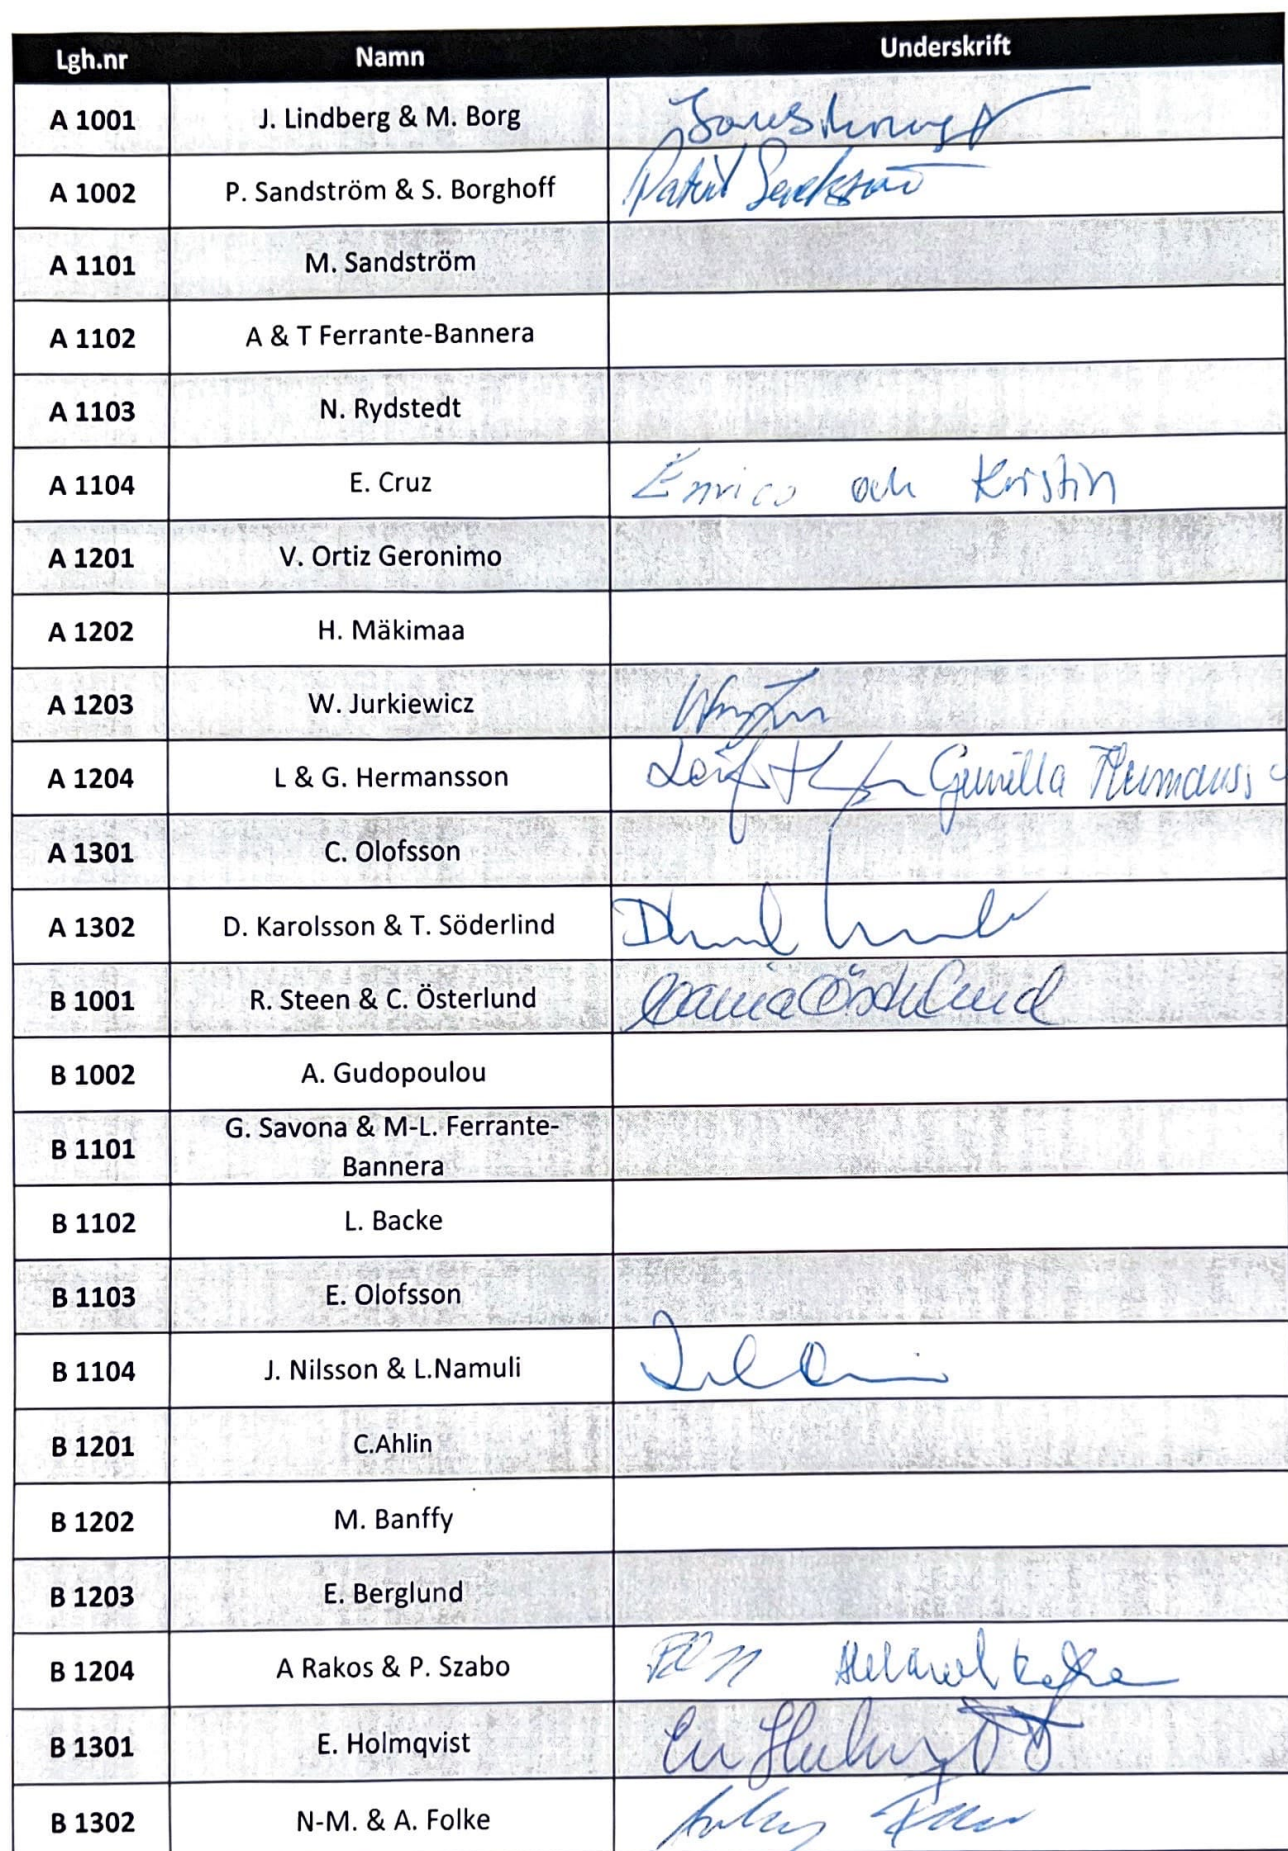 Lgh.nr Namn Underskrift
A 1001 J. Lindberg & M. Borg
A 1002 P. Sandström & S. Borghoff
A 1101 M. Sandström
A 1102 A & T Ferrante-Bannera
A 1103 N. Rydstedt
A 1104 E. Cruz Enrico och Kristin
A 1201 V. Ortiz Geronimo
A 1202 H. Mäkimaa
A 1203 W. Jurkiewicz
A 1204 L & G. Hermansson Leif Gunilla
A 1301 C. Olofsson
A 1302 D. Karolsson & T. Söderlind
B 1001 R. Steen & C. Österlund Österlund
B 1002 A. Gudopoulou
B 1101 G. Savona & M-L. Ferrante-
Bannera
B 1102 L. Backe
B 1103 E. Olofsson
B 1104 J. Nilsson & L.Namuli
B 1201 C.Ahlin
B 1202 M. Banffy
B 1203 E. Berglund
B 1204 A Rakos & P. Szabo
B 1301 E. Holmqvist
B 1302 N-M. & A. Folke